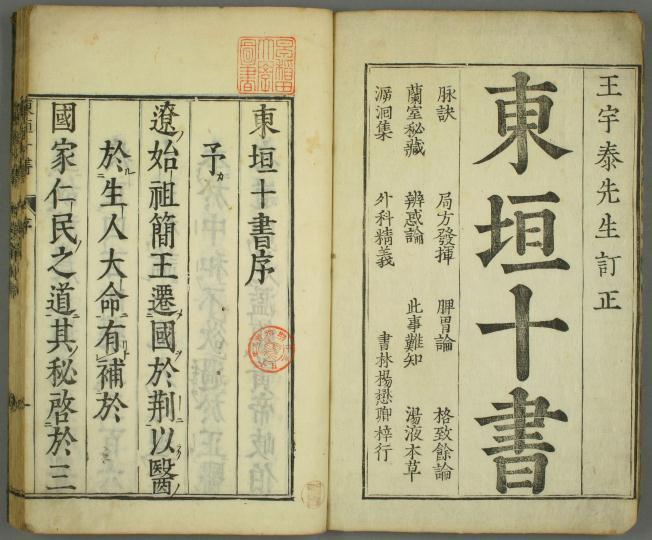 王宇泰先生訂正
東垣十書
脉訣 局方發揮 脾胃論 格致餘論
蘭室秘藏 辨惑論 此事難知 湯液本草
溯洄集 外科精義 書林楊懋卿梓行
東垣十書序
予カ
遼始祖簡王遷國於荆以醫
於生人大命有補於
國家仁民之道其秘啓於三
東垣十書 序